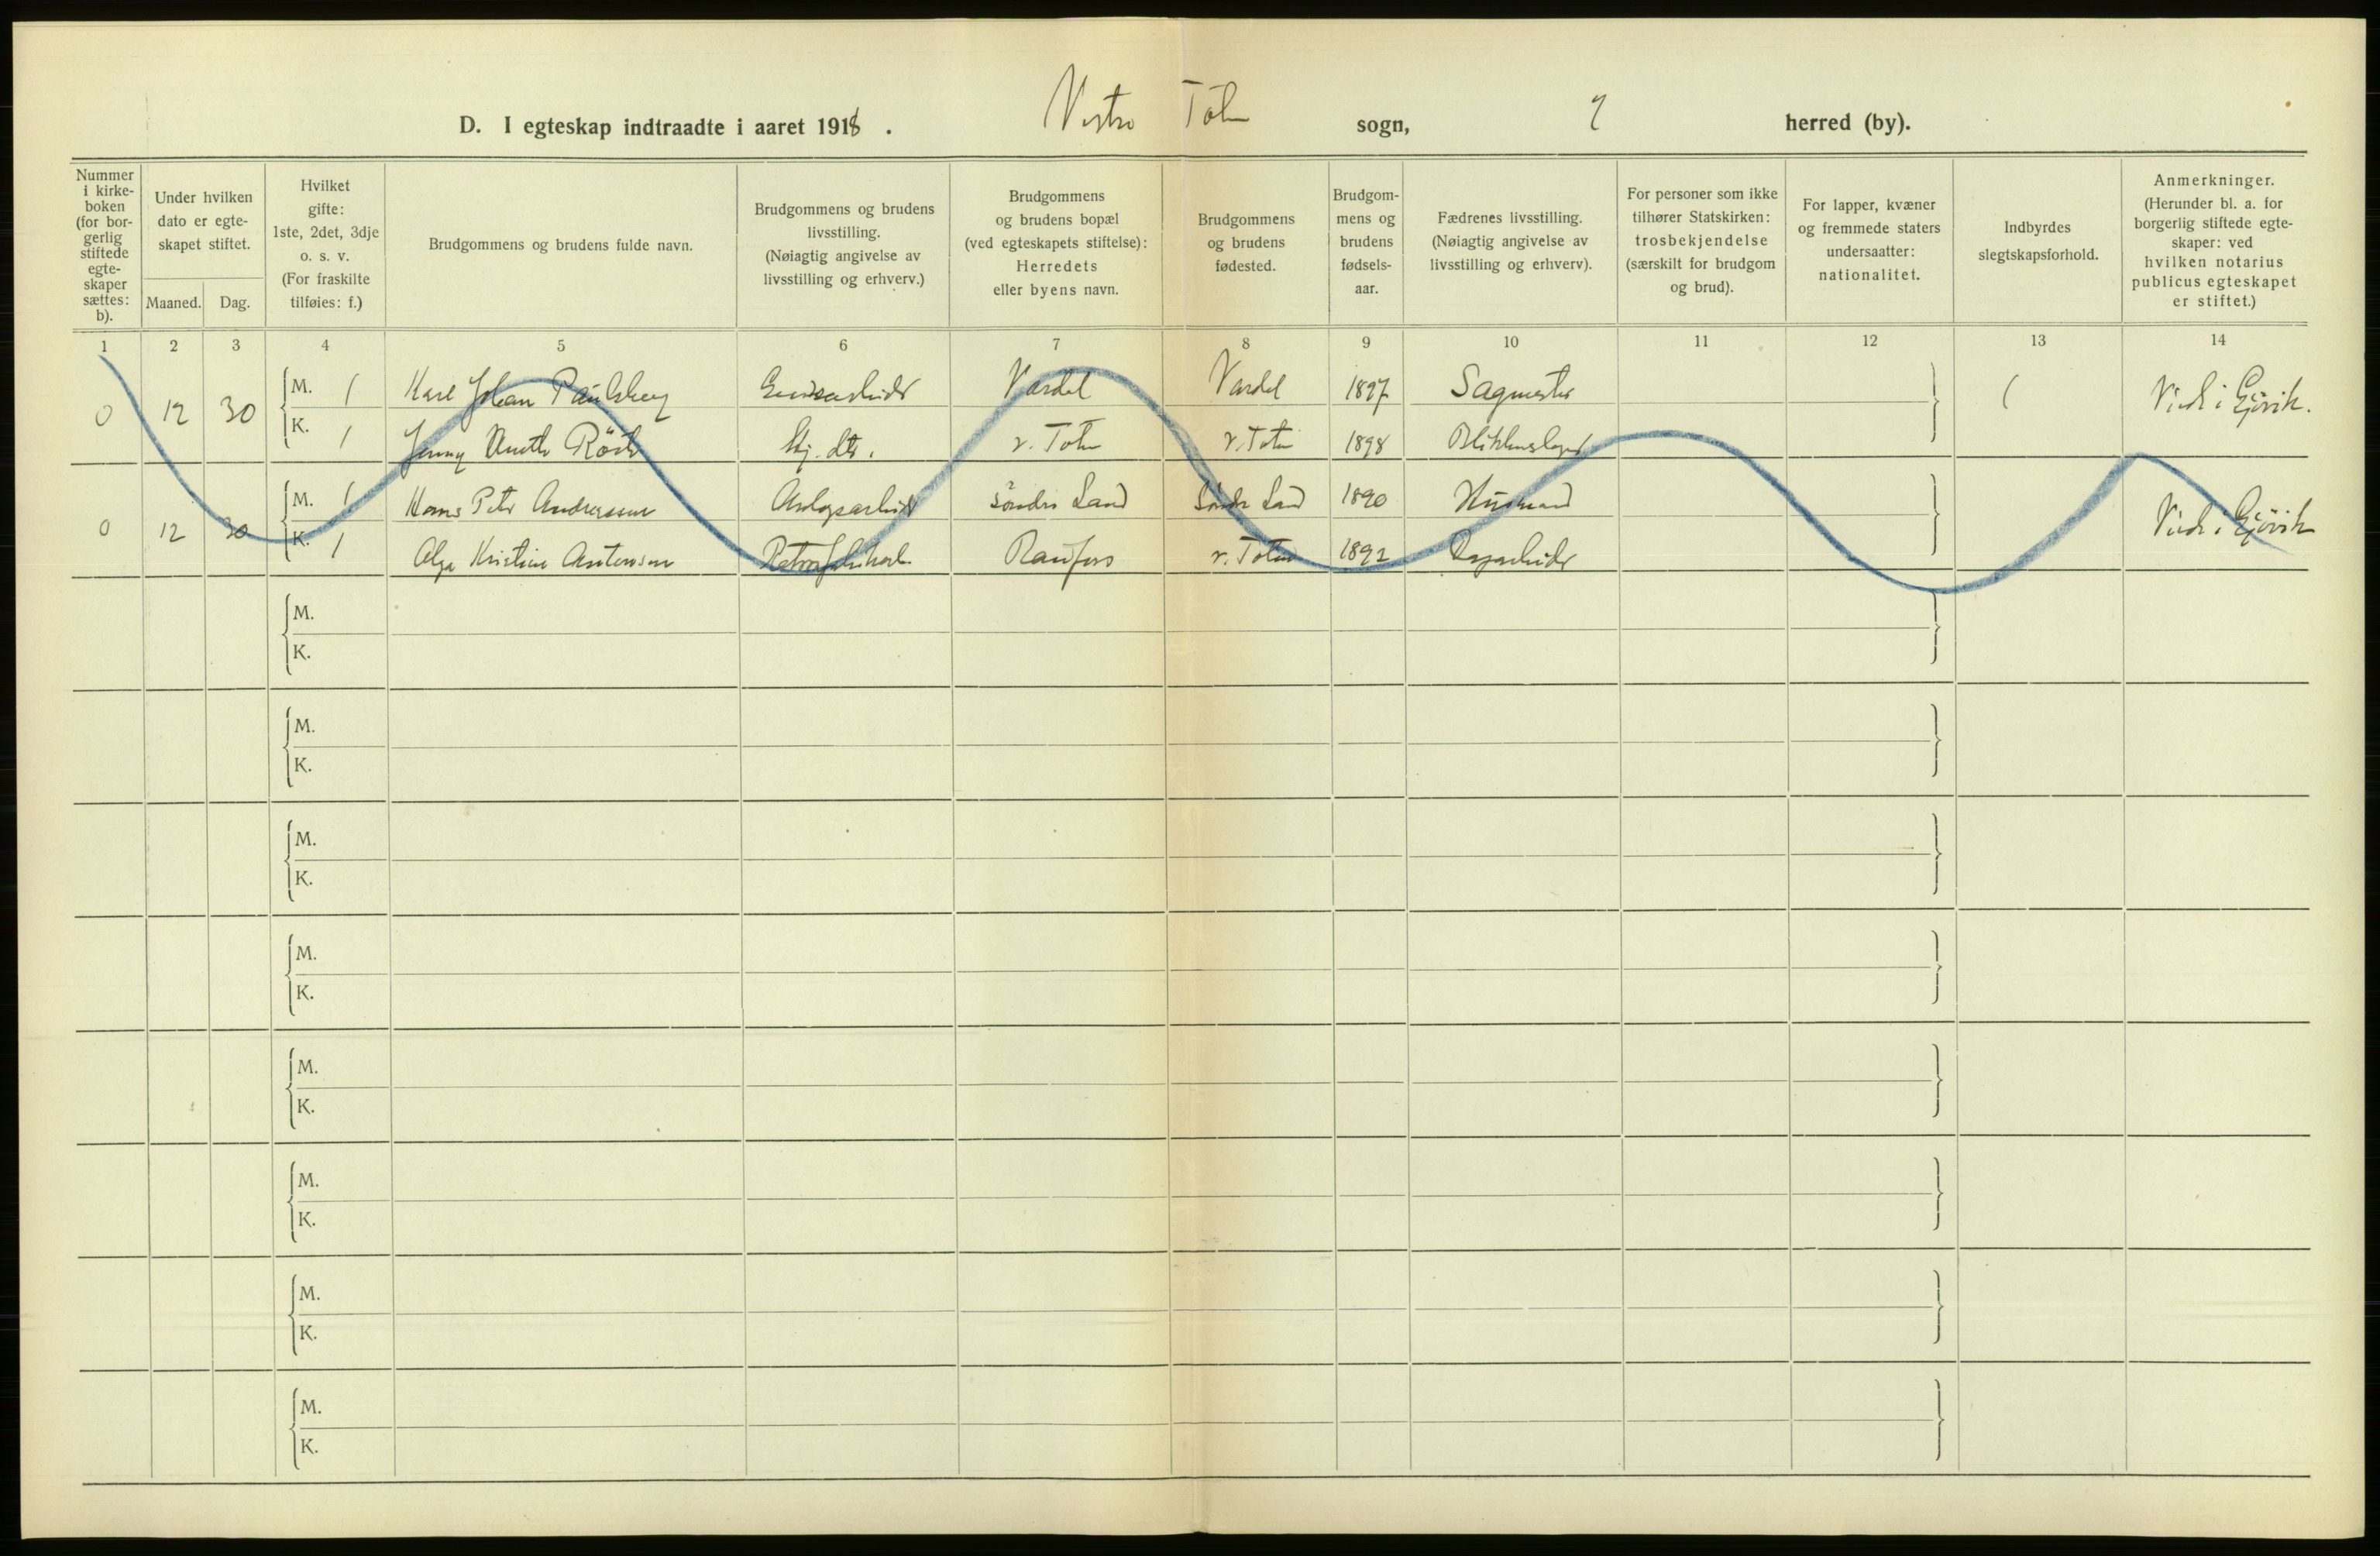 D. I egteskap indtraadte i aaret 1918. Vestre Toten sogn, herred (by).
Nummer i kirke-boken (for bor-gerlig stiftede egte-skaper sættes: b).
Under hvilken dato er egte-skapet stiftet.
Maaned. Dag.
Hvilket gifte: 1ste, 2det, 3dje o. s. v. (For fraskilte tilføies: f.)
Brudgommens og brudens fulde navn.
Brudgommens og brudens livsstilling. (Nøiagtig angivelse av livsstilling og erhverv.)
Brudgommens og brudens bopæl (ved egteskapets stiftelse): Herredets eller byens navn.
Brudgommens og brudens fødested.
Brudgom-mens og brudens fødsels-aar.
Fædrenes livsstilling. (Nøiagtig angivelse av livsstilling og erhverv).
For personer som ikke tilhører Statskirken: trosbekjendelse (særskilt for brudgom og brud).
For lapper, kvæner og fremmede staters undersaatter: nationalitet.
Indbyrdes slegtskapsforhold.
Anmerkninger. (Herunder bl. a. for borgerlig stiftede egte-skaper: ved hvilken notarius publicus egteskapet er stiftet.)
1 2 3 4 5 6 7 8 9 10 11 12 13 14
0 12 30 M. 1 Karl Johan Paulsberg Vardal Vardal 1897 Sagmester Viede i Gjövik.
K. 1 Jenny Röste v. Toten v. Toten 1898 Blikkenslager
0 12 30 M. 1 Hans Peter Anderssen Anlegsarbeider Söndre Land Söndre Land 1890 Husmand Viede i Gjövik
K. 1 Olga Kristine Antonsen Raufoss v. Toten 1892 Dagarbeider
M.
K.
M.
K.
M.
K.
M.
K.
M.
K.
M.
K.
M.
K.
M.
K.